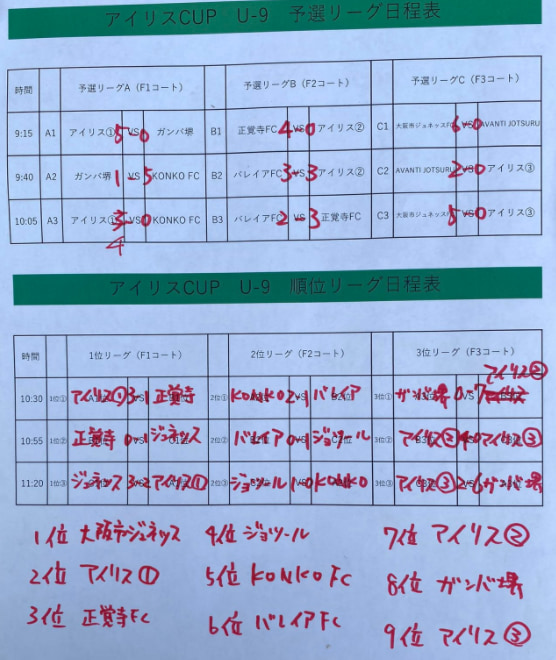 アイリスCUP U-9 予選リーグ日程表
時間 予選リーグA（F1コート） 予選リーグB（F2コート） 予選リーグC（F3コート）
9:15 A1 アイリス① 5 VS 0 ガンバ堺 B1 正覚寺FC 4 VS 0 アイリス② C1 大阪市ジュネッスFC 6 VS 0 AVANTI JOTSURU
9:40 A2 ガンバ堺 1 VS 5 KONKO FC B2 バレイアFC 3 VS 3 アイリス② C2 AVANTI JOTSURU 2 VS 0 アイリス③
10:05 A3 アイリス① 3 VS 0 KONKO FC B3 バレイアFC 2 VS 3 正覚寺FC C3 大阪市ジュネッスFC 5 VS 0 アイリス③
4
アイリスCUP U-9 順位リーグ日程表
時間 1位リーグ（F1コート） 2位リーグ（F2コート） 3位リーグ（F3コート）
アイリス②
10:30 1位① アイリス① 3 VS 1 正覚寺 2位① KONKO 2 VS 1 バレイア 3位① ガンバ堺 0 VS 7
10:55 1位② 正覚寺 0 VS 1 ジュネッス 2位② バレイア 0 VS 1 ジョツール 3位② アイリス② 4 VS 0 アイリス③
11:20 1位③ ジュネッス 3 VS 2 アイリス① 2位③ ジョツール 1 VS 0 KONKO 3位③ アイリス③ 2 VS 6 ガンバ堺
1位 大阪市ジュネッス 4位 ジョツール 7位 アイリス②
2位 アイリス① 5位 KONKO FC 8位 ガンバ堺
3位 正覚寺FC 6位 バレイアFC 9位 アイリス③